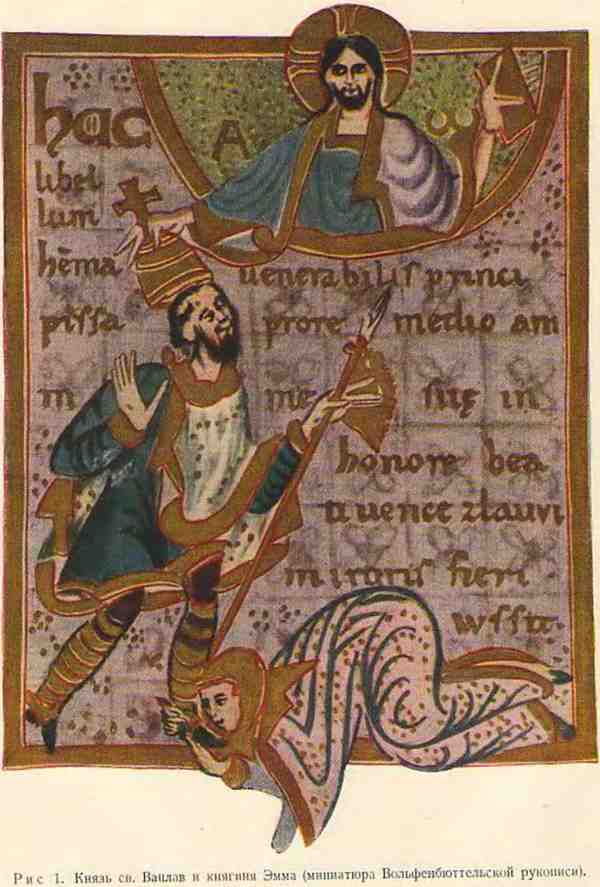 hac
A ω
libel
lum
hēma uenerabilis princi
pissa prore medio am
m me suę in
honore bea
ti uencezlauvi
fieri
Рис 1. Князь св. Вацлав и княгиня Эмма (миниатюра Вольфенбюттельской рукописи).